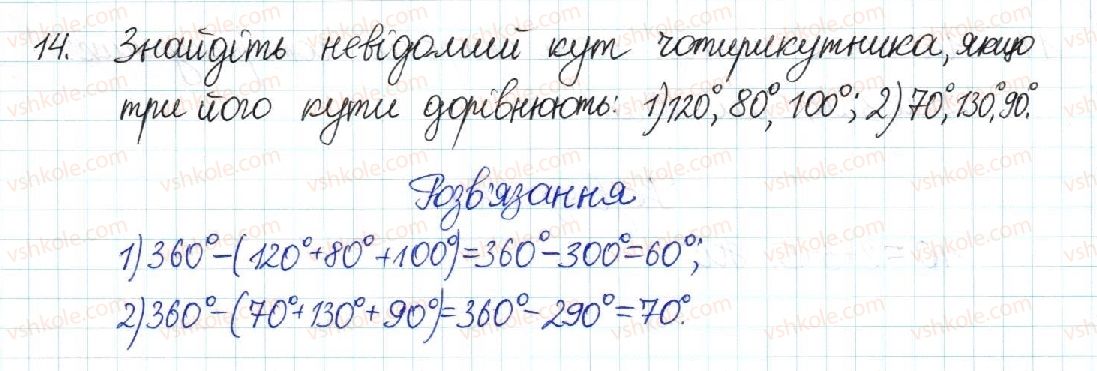 14. Знайдіть невідомий кут чотирикутника, якщо
три його кути дорівнюють: 1) 120°, 80°, 100°; 2) 70°, 130°, 90°.
Розв'язання
1) 360° - (120° + 80° + 100°) = 360° - 300° = 60°;
2) 360° - (70° + 130° + 90°) = 360° - 290° = 70°.